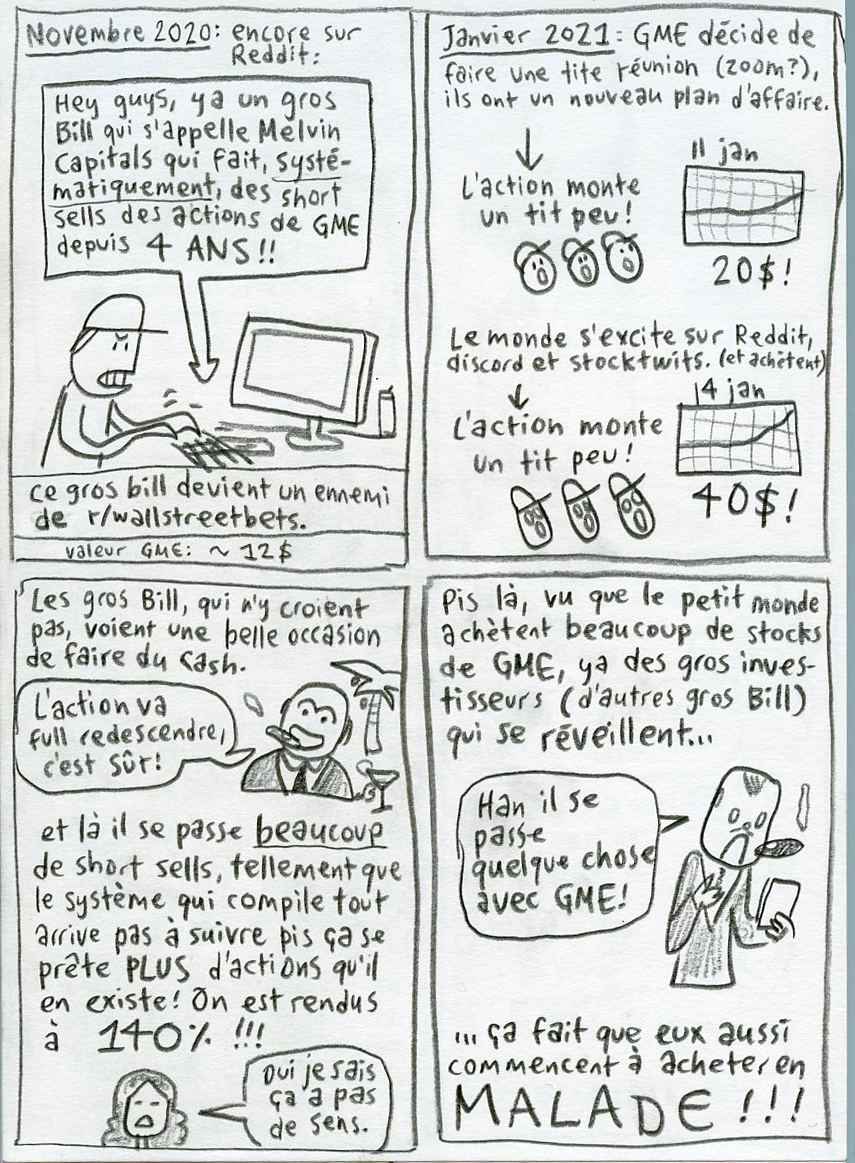 Novembre 2020: encore sur
Reddit:
Hey guys, ya un gros
Bill qui s'appelle Melvin
Capitals qui fait, systé-
matiquement, des short
sells des actions de GME
depuis 4 ANS!!
ce gros bill devient un ennemi
de r/wallstreetbets.
valeur GME: ~ 12$
Janvier 2021: GME décide de
faire une tite réunion (zoom?),
ils ont un nouveau plan d'affaire.
L'action monte
un tit peu!
11 jan
20$!
Le monde s'excite sur Reddit,
discord et stocktwits. (et achètent)
L'action monte
un tit peu!
14 jan
40$!
Les gros Bill, qui n'y croient
pas, voient une belle occasion
de faire du cash.
L'action va
full redescendre,
c'est sûr!
et là il se passe beaucoup
de short sells, tellement que
le système qui compile tout
arrive pas à suivre pis ça se
prête PLUS d'actions qu'il
en existe! On est rendus
à 140% !!!
oui je sais
ça a pas
de sens.
Pis là, vu que le petit monde
achètent beaucoup de stocks
de GME, ya des gros inves-
tisseurs (d'autres gros Bill)
qui se réveillent...
Han il se
passe
quelque chose
avec GME!
... ça fait que eux aussi
commencent à acheter en
MALADE !!!